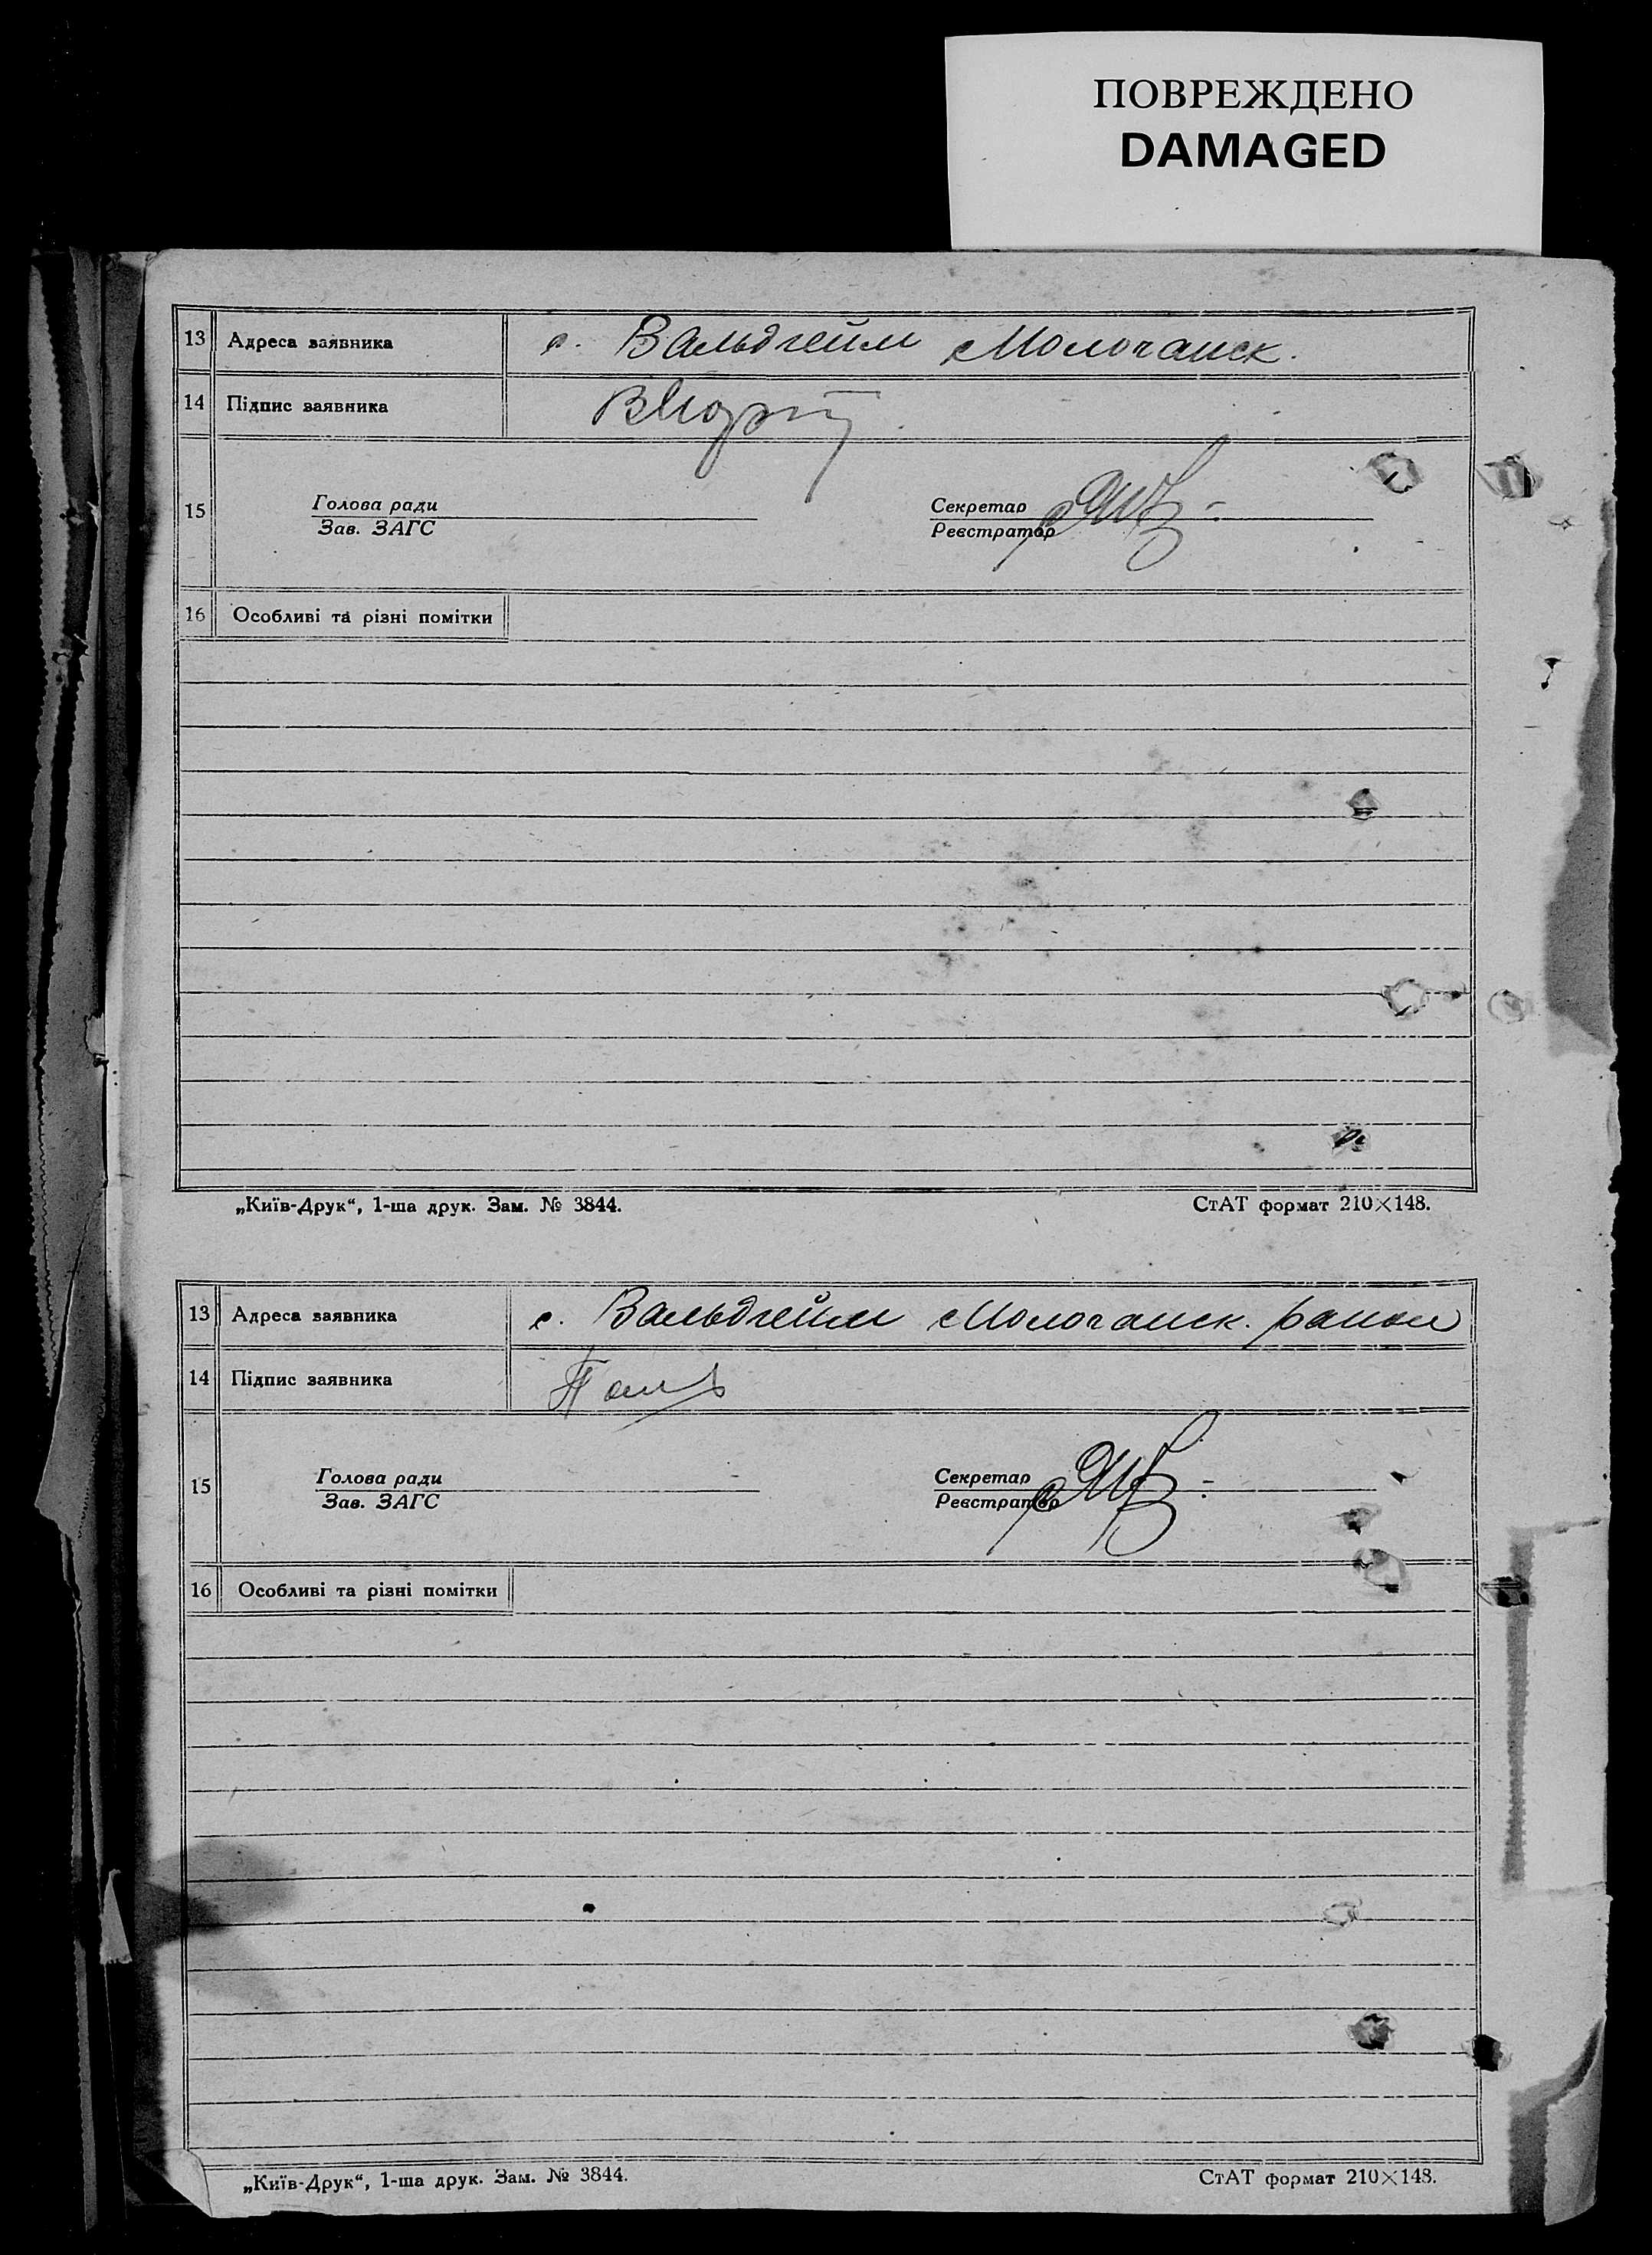 ПОВРЕЖДЕНО
DAMAGED
13 Адреса заявника с. Вальдгейм Молочанск.
14 Підпис заявника
15 Голова ради Секретар
Зав. ЗАГС Реєстратор
16 Особливі та різні помітки
„Київ-Друк“, 1-ша друк. Зам. № 3844. СтАТ формат 210×148.
13 Адреса заявника с. Вальдгейм Молочанск. район
14 Підпис заявника
15 Голова ради Секретар
Зав. ЗАГС Реєстратор
16 Особливі та різні помітки
„Київ-Друк“, 1-ша друк. Зам. № 3844. СтАТ формат 210×148.